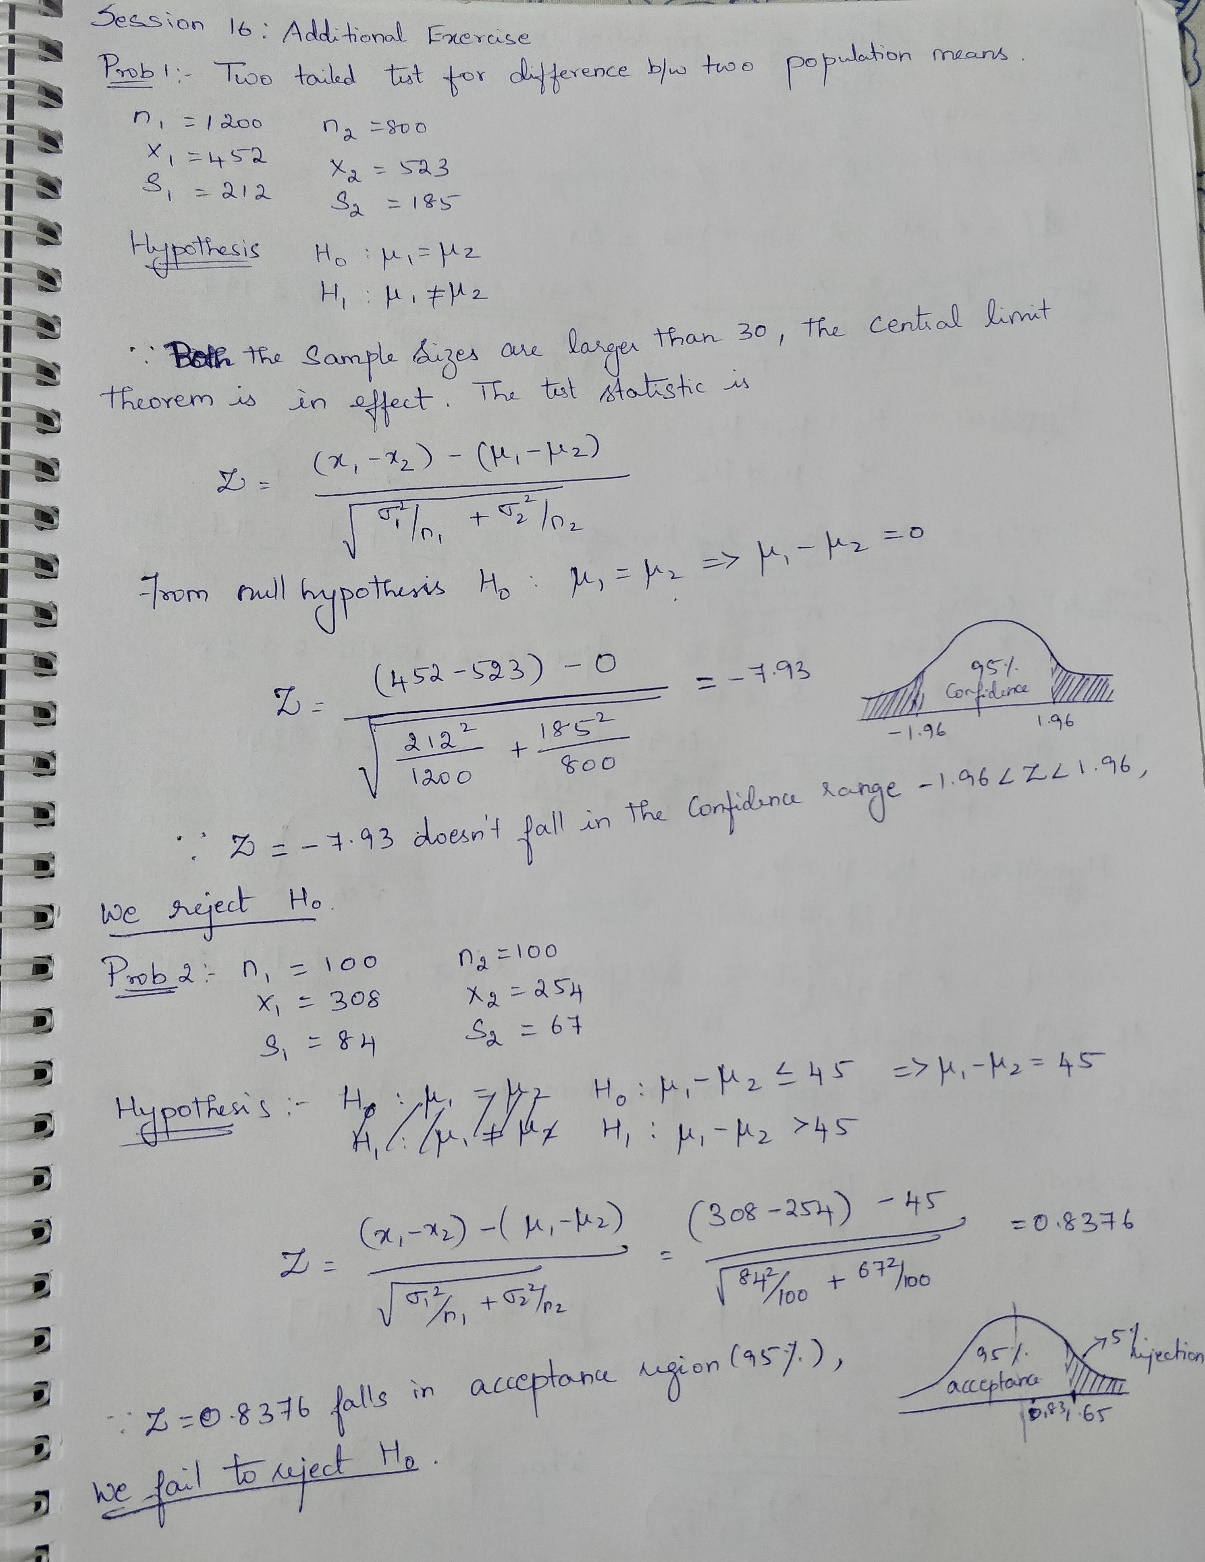 Session 16: Additional Exercise
Prob 1:- Two tailed test for difference b/w two population means.
n₁ = 1200 n₂ = 800
X₁ = 452 X₂ = 523
S₁ = 212 S₂ = 185
Hypothesis H₀ : μ₁ = μ₂
H₁ : μ₁ ≠ μ₂
∵ Both the sample sizes are larger than 30, the central limit
theorem is in effect. The test statistic is
Z = (x₁ - x₂) - (μ₁ - μ₂) / √(σ₁²/n₁ + σ₂²/n₂)
From null hypothesis H₀ : μ₁ = μ₂ => μ₁ - μ₂ = 0
Z = (452 - 523) - 0 / √(212²/1200 + 185²/800) = -7.93
95% Confidence
-1.96 1.96
∵ Z = -7.93 doesn't fall in the Confidence range -1.96 < Z < 1.96,
We reject H₀.
Prob 2:- n₁ = 100 n₂ = 100
X₁ = 308 X₂ = 254
S₁ = 84 S₂ = 67
Hypothesis:- H₀ : μ₁ = μ₂ H₀ : μ₁ - μ₂ ≤ 45 => μ₁ - μ₂ = 45
H₁ : μ₁ ≠ μ₂ H₁ : μ₁ - μ₂ > 45
Z = (x₁ - x₂) - (μ₁ - μ₂) / √(σ₁²/n₁ + σ₂²/n₂) = (308 - 254) - 45 / √(84²/100 + 67²/100) = 0.8376
95% acceptance
5% rejection
0.83 1.65
∵ Z = 0.8376 falls in acceptance region (95%),
We fail to reject H₀.